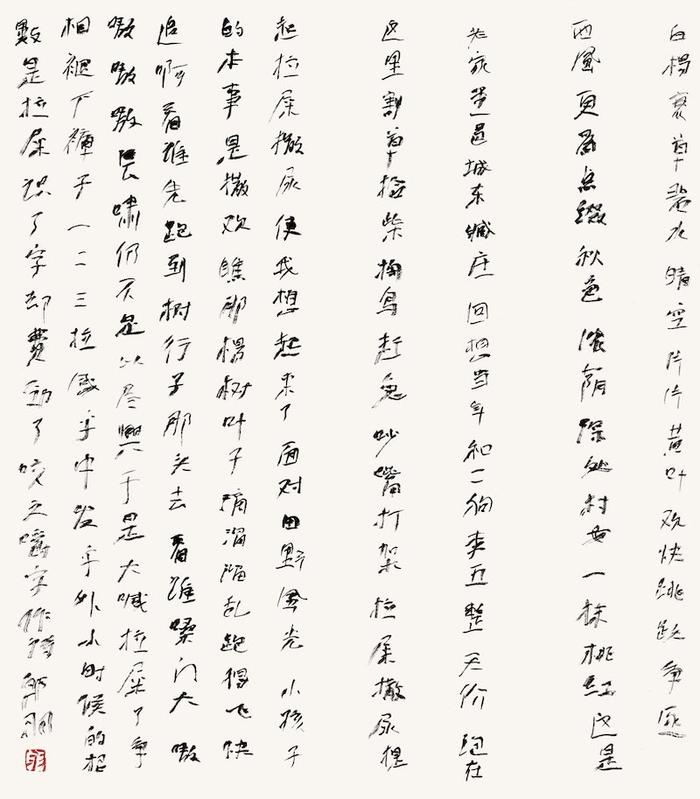 白杨衰草碧水晴空片片黄叶欢快跳跃争逐
西风更为点缀秋色浓荫深处村女一抹桃红这是
老家堂邑城东臧庄回想当年和二狗夹五整天价跑在
这里割草捡柴掏鸟赶兔吵嘴打架拉屎撒尿提
起拉屎撒尿使我想起来了面对田野风光小孩子
的本事是撒欢瞧那杨树叶子滴溜溜乱跑得飞快
追啊看谁先跑到树行子那头去看谁嗓门大嗷
嗷嗷嗷长啸仍不足以尽兴于是大喊拉屎了争
相褪下裤子一二三拉感乎中发乎外小时候的把
数是拉屎识了字却费劲了咬文嚼字作诗